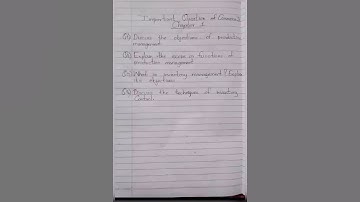 Important Question of Commerce
Chapter 1
Q1) Discuss the objectives of production
management
Q2) Explain the scope or functions of
production management
Q3) What is inventory management? Explain
its objectives
Q4) Discuss the techniques of inventory
Control